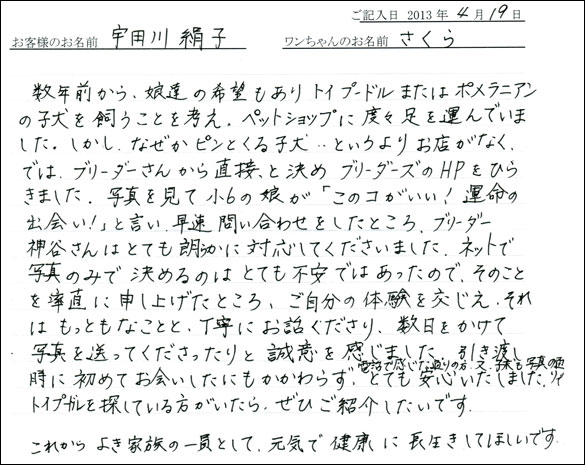 ご記入日 2013 年 4 月 19 日
お客様のお名前 宇田川 絹子 ワンちゃんのお名前 さくら
数年前から、娘達の希望もあり トイプードル または ポメラニアン
の子犬を飼うことを考え、ペットショップに度々足を運んでいま
した。しかし、なぜかピンとくる子犬‥というよりお店がなく、
では、ブリーダーさんから直接、と決め ブリーダーズのHPをひら
きました。写真を見て小6の娘が「このコがいい！運命の
出会い！」と言い、早速問い合わせをしたところ、ブリーダー
神谷さんはとても朗らかに対応してくださいました。ネットで
写真のみで決めるのはとても不安ではあったので、そのこと
を率直に申し上げたところ、ご自分の体験を交じえ、それ
はもっともなことと、丁寧にお話くださり、数日をかけて
写真を送ってくださったりと誠意を感じました。引き渡し
電話で感じた通りの方、又、子犬も写真の通り
時に初めてお会いしたにもかかわらず、とても安心いたしました。
トイプードルを探している方がいたら、ぜひご紹介したいです。
これから よき家族の一員として、元気で健康に長生きしてほしいです